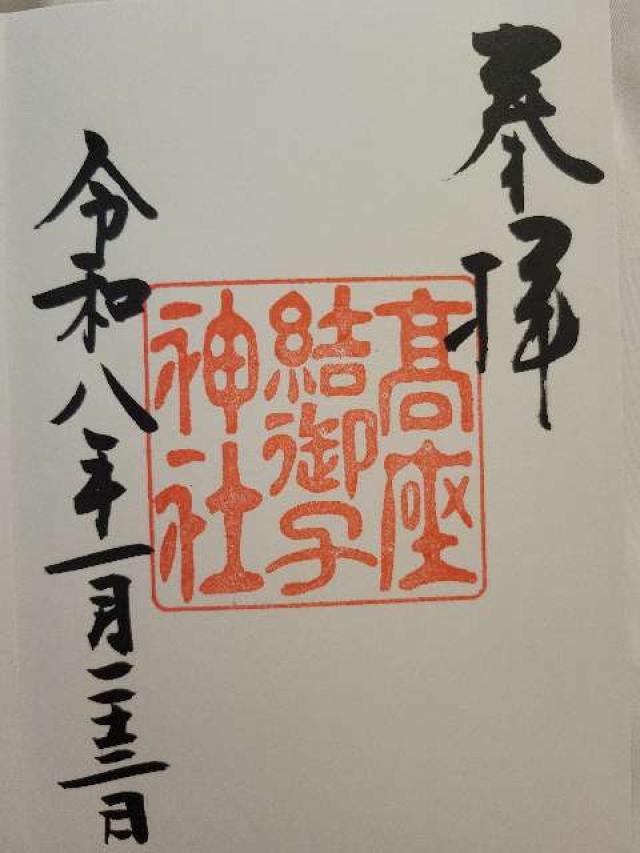 奉拝
高座
結御子
神社
令和八年一月二十三日